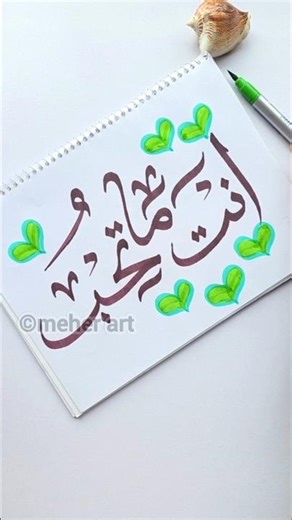 أنت ما تحب
©meher art